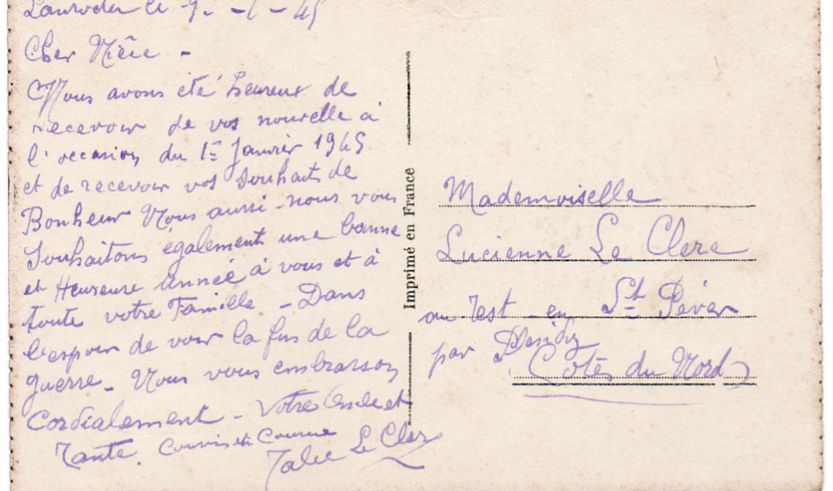 le 9 - 1 - 45
Cher Nièce -
Nous avons été heureux de
recevoir de vos nouvelle à
l'occasion du 1er Janvier 1945
et de recevoir vos souhaits de
Bonheur Nous aussi - nous vous
souhaitons également une bonne
et Heureuse année à vous et à
toute votre Famille - Dans
l'espoir de voir la fin de la
guerre - Nous vous embrasson
Cordialement - Votre Oncle et
Tante. Cousin et Cousine
Le Clerc
Imprimé en France
Mademoiselle
Lucienne Le Clerc
au Test en St Péver
par
Côtes du Nord